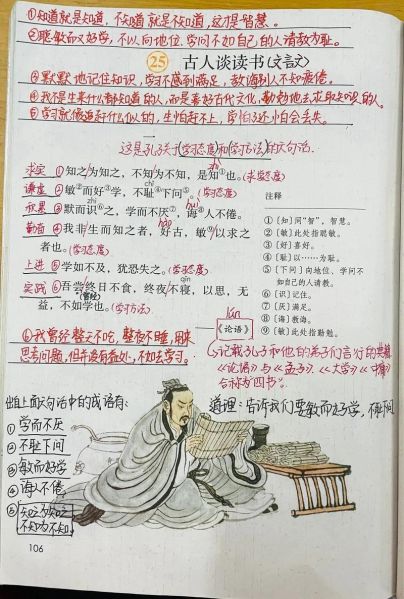 ①知道就是知道，不知道就是不知道，这才是智慧。
②聪敏而又好学，不以向地位、学问不如自己的人请教为耻。
25 古人谈读书(文言文)
③默默地记住知识，学习不感到满足，教诲别人不知疲倦。
④我不是生来什么都知道的人，而是喜好古代文化，勤勉地去求取知识的人。
⑤学习就像追赶什么似的，生怕赶不上，学怕了还怕会丢失。
这是孔子关于(学习态度)和(学习方法)的六句话。
求实 ①知之为知之，不知为不知，是知①也。(求实态度)
谦虚 ②敏②而好③学，不耻④下问⑤。(学习态度)
③默而识⑥之，学而不厌⑦，诲⑧人不倦。
勤奋 ④我非生而知之者，好古，敏⑨以求之
者也。(学习态度)
上进 ⑤学如不及，犹恐失之。(学习态度)
实践 ⑥吾尝终日不食，终夜不寝，以思，无
(曾经)
益，不如学也。(学习方法)
lún
《论语》
注释
①〔知〕同“智”，智慧。
②〔敏〕此处指聪敏。
③〔好〕喜好。
④〔耻〕以……为耻。
⑤〔下问〕向地位、学问不
如自己的人请教。
⑥〔识〕记住。
⑦〔厌〕满足。
⑧〔诲〕教诲。
⑨〔敏〕此处指勤勉。
⑥我曾经整天不吃，整夜不睡，用来
思考问题，但并没有益处，不如去学习。
记载孔子和他的弟子们言行的
《论语》与《孟子》、《大学》《中庸》
合称为四书。
出自上面六句话中的成语有：
①学而不厌
②不耻下问
③敏而好学
④诲人不倦
⑤知之为知之
不知为不知
道理：告诉我们要敏而好学，不耻下问
106